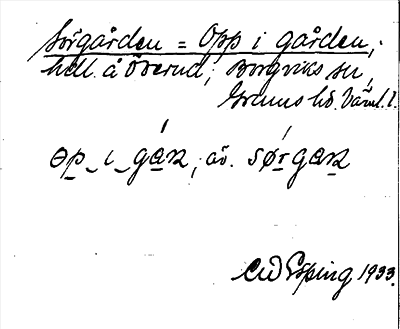 Sörgården = Opp i gården,
häll. å Överud, Borgviks sn,
Grums hd. Värml. l.
øp i gáɐn, äv. sǿrgɐn
C W Esping 1933.